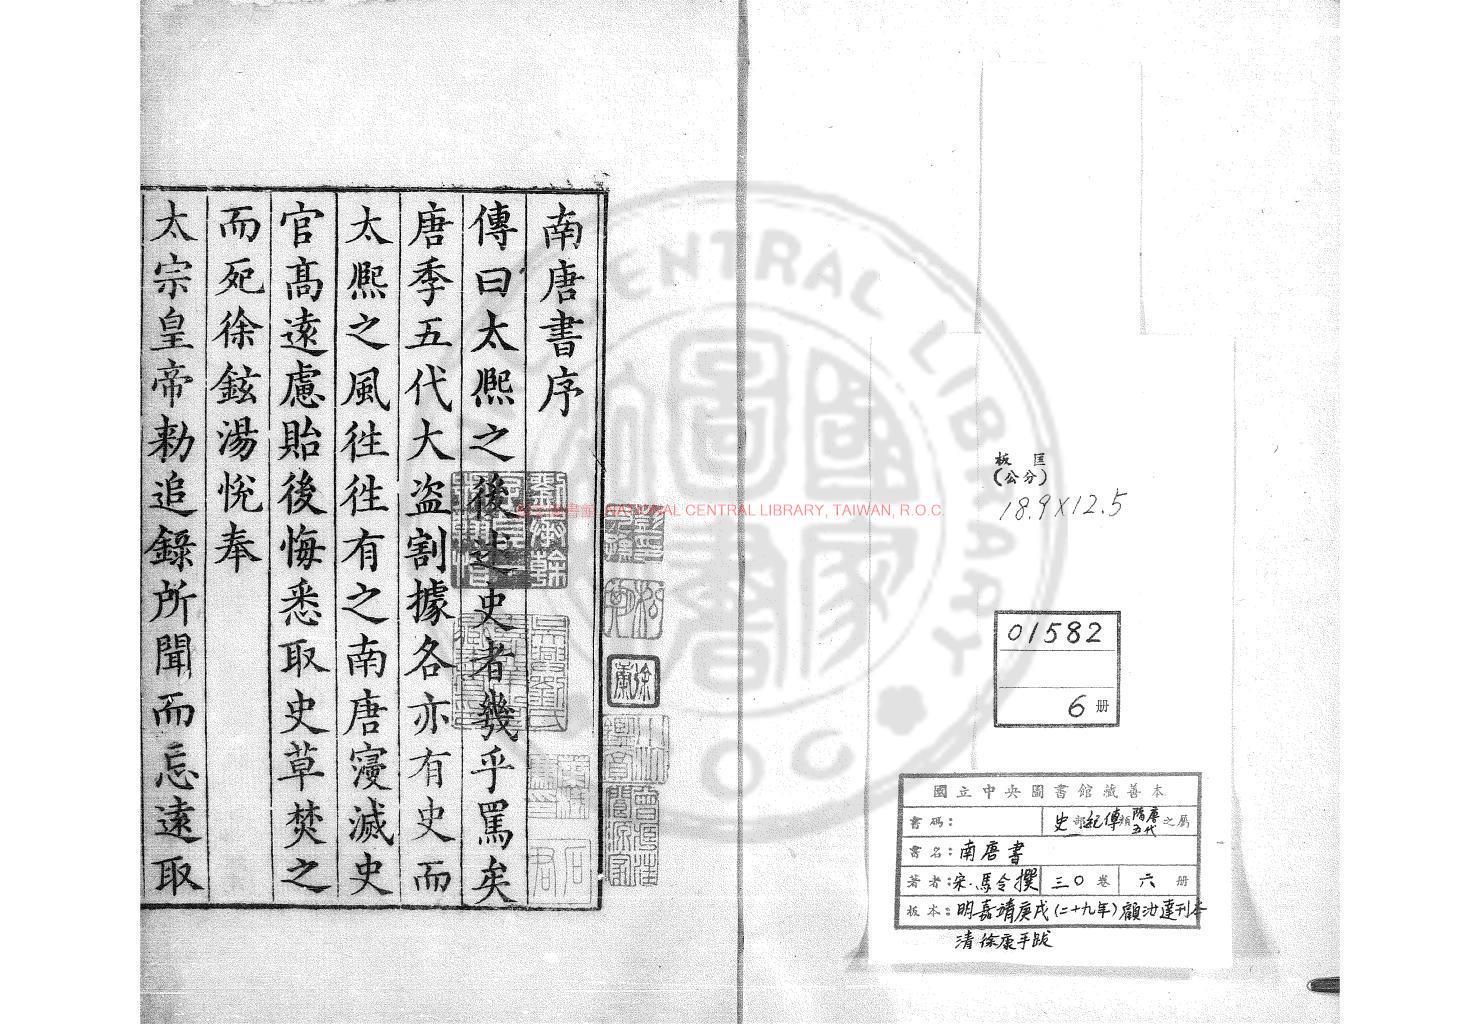 南唐書序
傳曰太熈之後述史者幾乎罵矣
唐季五代大盗割據各亦有史而
太熈之風徃徃有之南唐寖滅史
官髙遠慮貽後悔悉取史草焚之
而死徐鉉湯悅奉
太宗皇帝勅追錄所聞而忘遠取
劉承幹
NATIONAL CENTRAL LIBRARY, TAIWAN, R.O.C.
CENTRAL LIBRARY
國家圖書
板匡
(公分)
18.9×12.5
01582
6册
國立中央圖書館藏善本
書碼： 史部紀傳類隋唐五代之屬
書名：南唐書
著者：宋·馬令撰 三〇卷 六册
板本：明嘉靖庚戌(二十九年)顧汝達刊本
清徐康手跋